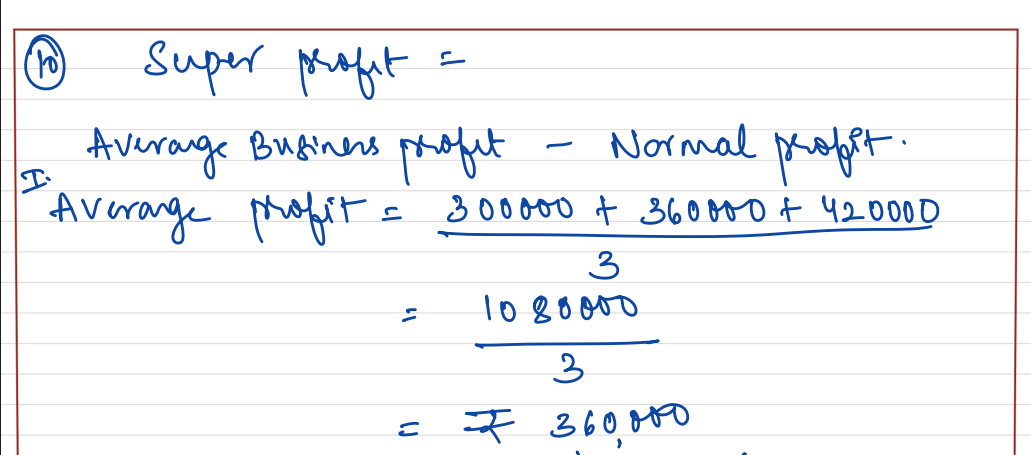 10 Super profit =
Average Business profit - Normal profit.
I.
Average profit = 300000 + 360000 + 420000
3
= 1080000
3
= ₹ 360,000